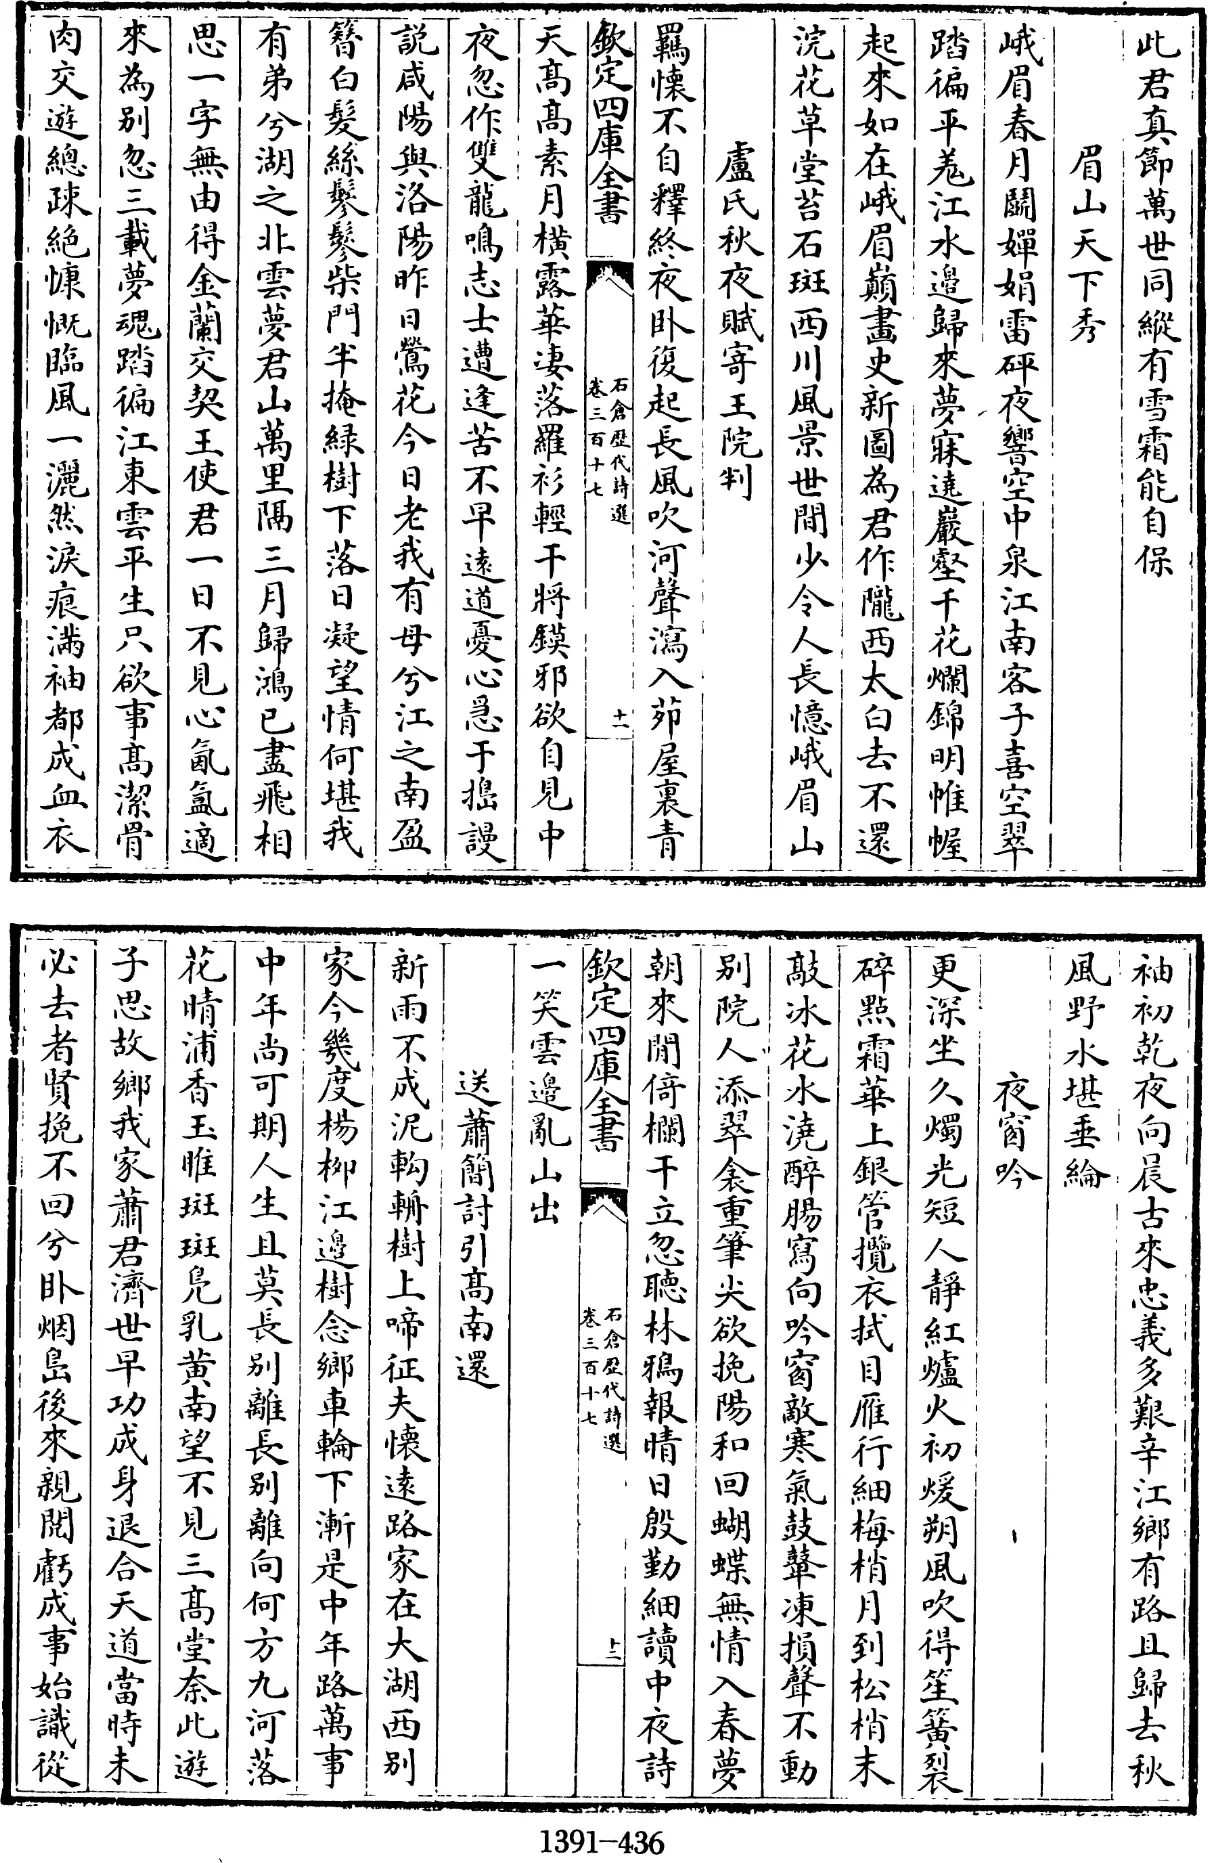 此君真節萬世同縱有雪霜能自保
眉山天下秀
峨眉春月鬬嬋娟雷砰夜響空中泉江南客子喜空翠
踏徧平羗江水邉歸來夢寐遶巖壑千花爛錦明帷幄
起來如在峨眉巔畫史新圖為君作隴西太白去不還
浣花草堂苔石斑西川風景世間少令人長憶峨眉山
盧氏秋夜賦寄王院判
羈懷不自釋終夜卧復起長風吹河聲瀉入茆屋裏青
欽定四庫全書
石倉歴代詩選
卷三百十七
十一
天髙髙素月横露華凄落羅衫輕干將鏌邪欲自見中
夜忽作雙龍鳴志士遭逢苦不早逺道憂心惄于擣謾
説咸陽與洛陽昨日鶯花今日老我有母兮江之南盈
簪白髮絲鬖鬖柴門半掩緑樹下落日凝望情何堪我
有弟兮湖之北雲夢君山萬里隔三月歸鴻已盡飛相
思一字無由得金蘭交契王使君一日不見心氤氲適
來為别忽三載夢魂踏徧江東雲平生只欲事髙潔骨
肉交遊總踈絶慷慨臨風一灑然淚痕滿袖都成血衣
袖初乾夜向晨古來忠義多艱辛江鄉有路且歸去秋
風野水堪垂綸
夜窗吟
更深坐久燭光短人靜紅爐火初煖朔風吹得笙簧裂
碎點霜華上銀管攬衣拭目雁行細梅梢月到松梢末
敲冰花水澆醉腸寫向吟窗敵寒氣鼓鼙凍損聲不動
别院人添翠衾重筆尖欲挽陽和回蝴蝶無情入春夢
朝來閒倚欄干立忽聽林鴉報晴日殷勤細讀中夜詩
欽定四庫全書
石倉歴代詩選
卷三百十七
十二
一笑雲邉亂山出
送蕭簡討引髙南還
新雨不成泥鞫輈樹上啼征夫懷逺路家在大湖西别
家今幾度楊栁江邉樹念鄉車輪下漸是中年路萬事
中年尚可期人生且莫長别離長别離向何方九河落
花晴浦香玉雎斑斑鳬乳黄南望不見三髙堂奈此遊
子思故鄉我家蕭君濟世早功成身退合天道當時未
必去者賢挽不回兮卧烟島後來親閲虧成事始識從
1391-436